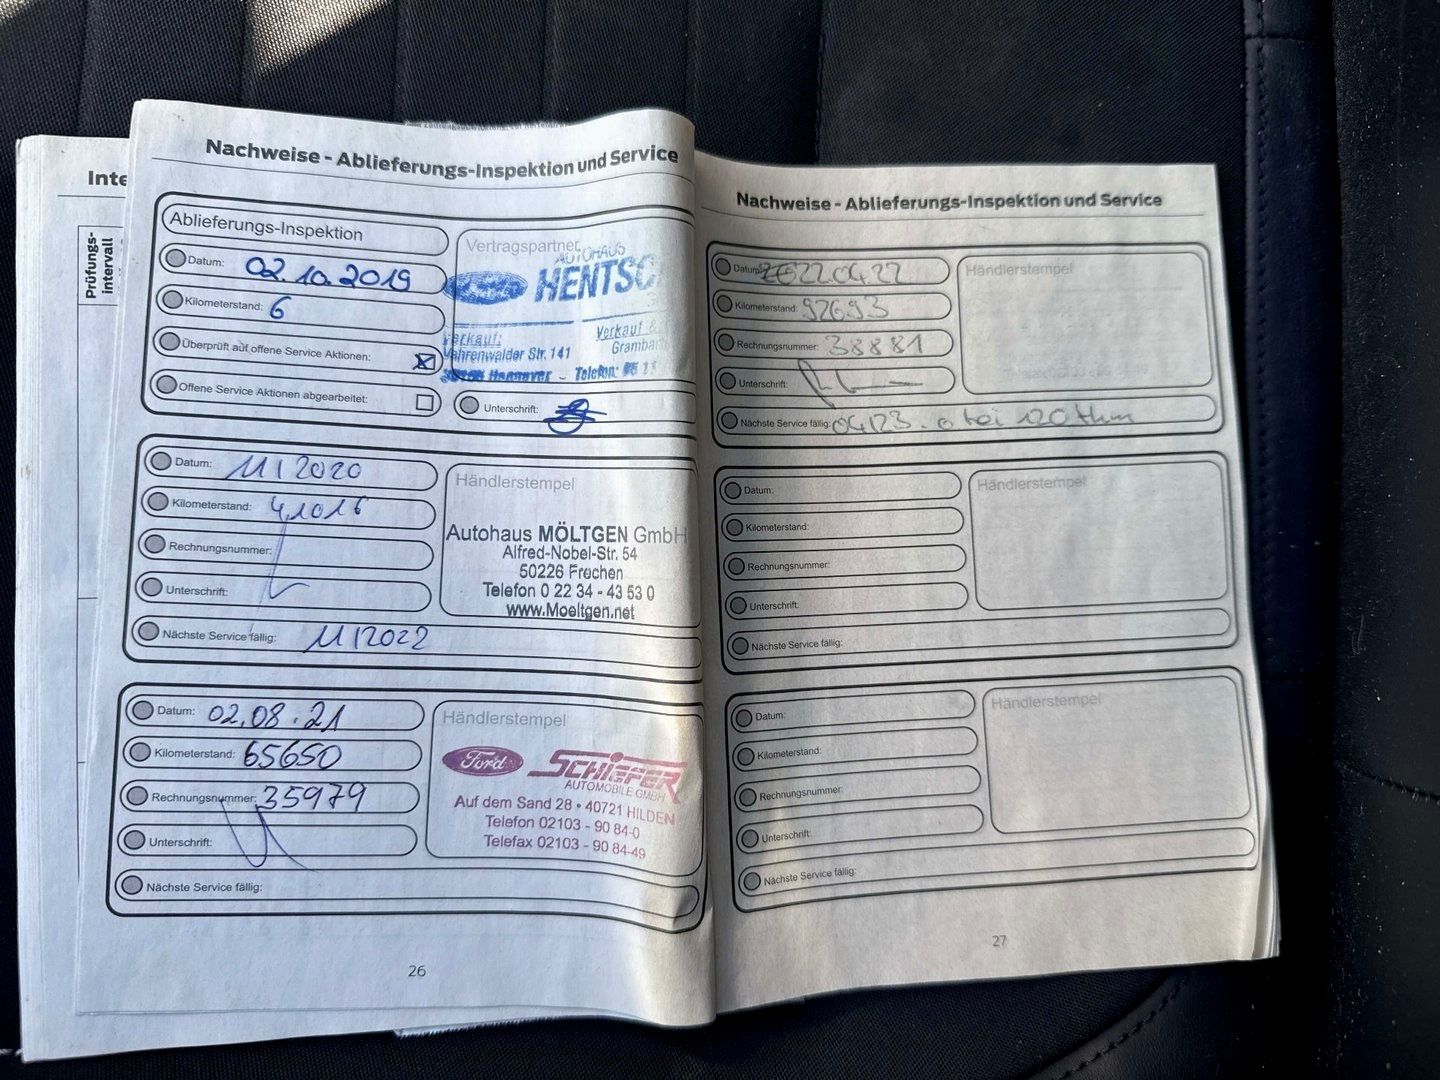 Inte
Prüfungs-
intervall
Nachweise - Ablieferungs-Inspektion und Service
Ablieferungs-Inspektion
Datum: 02.10.2019
Kilometerstand: 6
Überprüft auf offene Service Aktionen:
Offene Service Aktionen abgearbeitet:
Vertragspartner
AUTOHAUS
HENTSC
Verkauf:
Vahrenwalder Str. 141
Hannover - Telefon:
Verkauf &
Grambar
Unterschrift:
Datum: 11/2020
Kilometerstand: 41016
Rechnungsnummer:
Unterschrift:
Nächste Service fällig: 11/2022
Händlerstempel
Autohaus MÖLTGEN GmbH
Alfred-Nobel-Str. 54
50226 Frechen
Telefon 0 22 34 - 43 53 0
www.Moeltgen.net
Datum: 02.08.21
Kilometerstand: 65650
Rechnungsnummer: 35979
Unterschrift:
Nächste Service fällig:
Händlerstempel
Ford SCHIEFER
AUTOMOBILE GMBH
Auf dem Sand 28 • 40721 HILDEN
Telefon 02103 - 90 84-0
Telefax 02103 - 90 84-49
26
Nachweise - Ablieferungs-Inspektion und Service
Datum: 22.04.22
Kilometerstand: 92693
Rechnungsnummer: 38881
Unterschrift:
Nächste Service fällig: 04/23. o bei 120 tkm
Händlerstempel
Datum:
Kilometerstand:
Rechnungsnummer:
Unterschrift:
Nächste Service fällig:
Händlerstempel
Datum:
Kilometerstand:
Rechnungsnummer:
Unterschrift:
Nächste Service fällig:
Händlerstempel
27